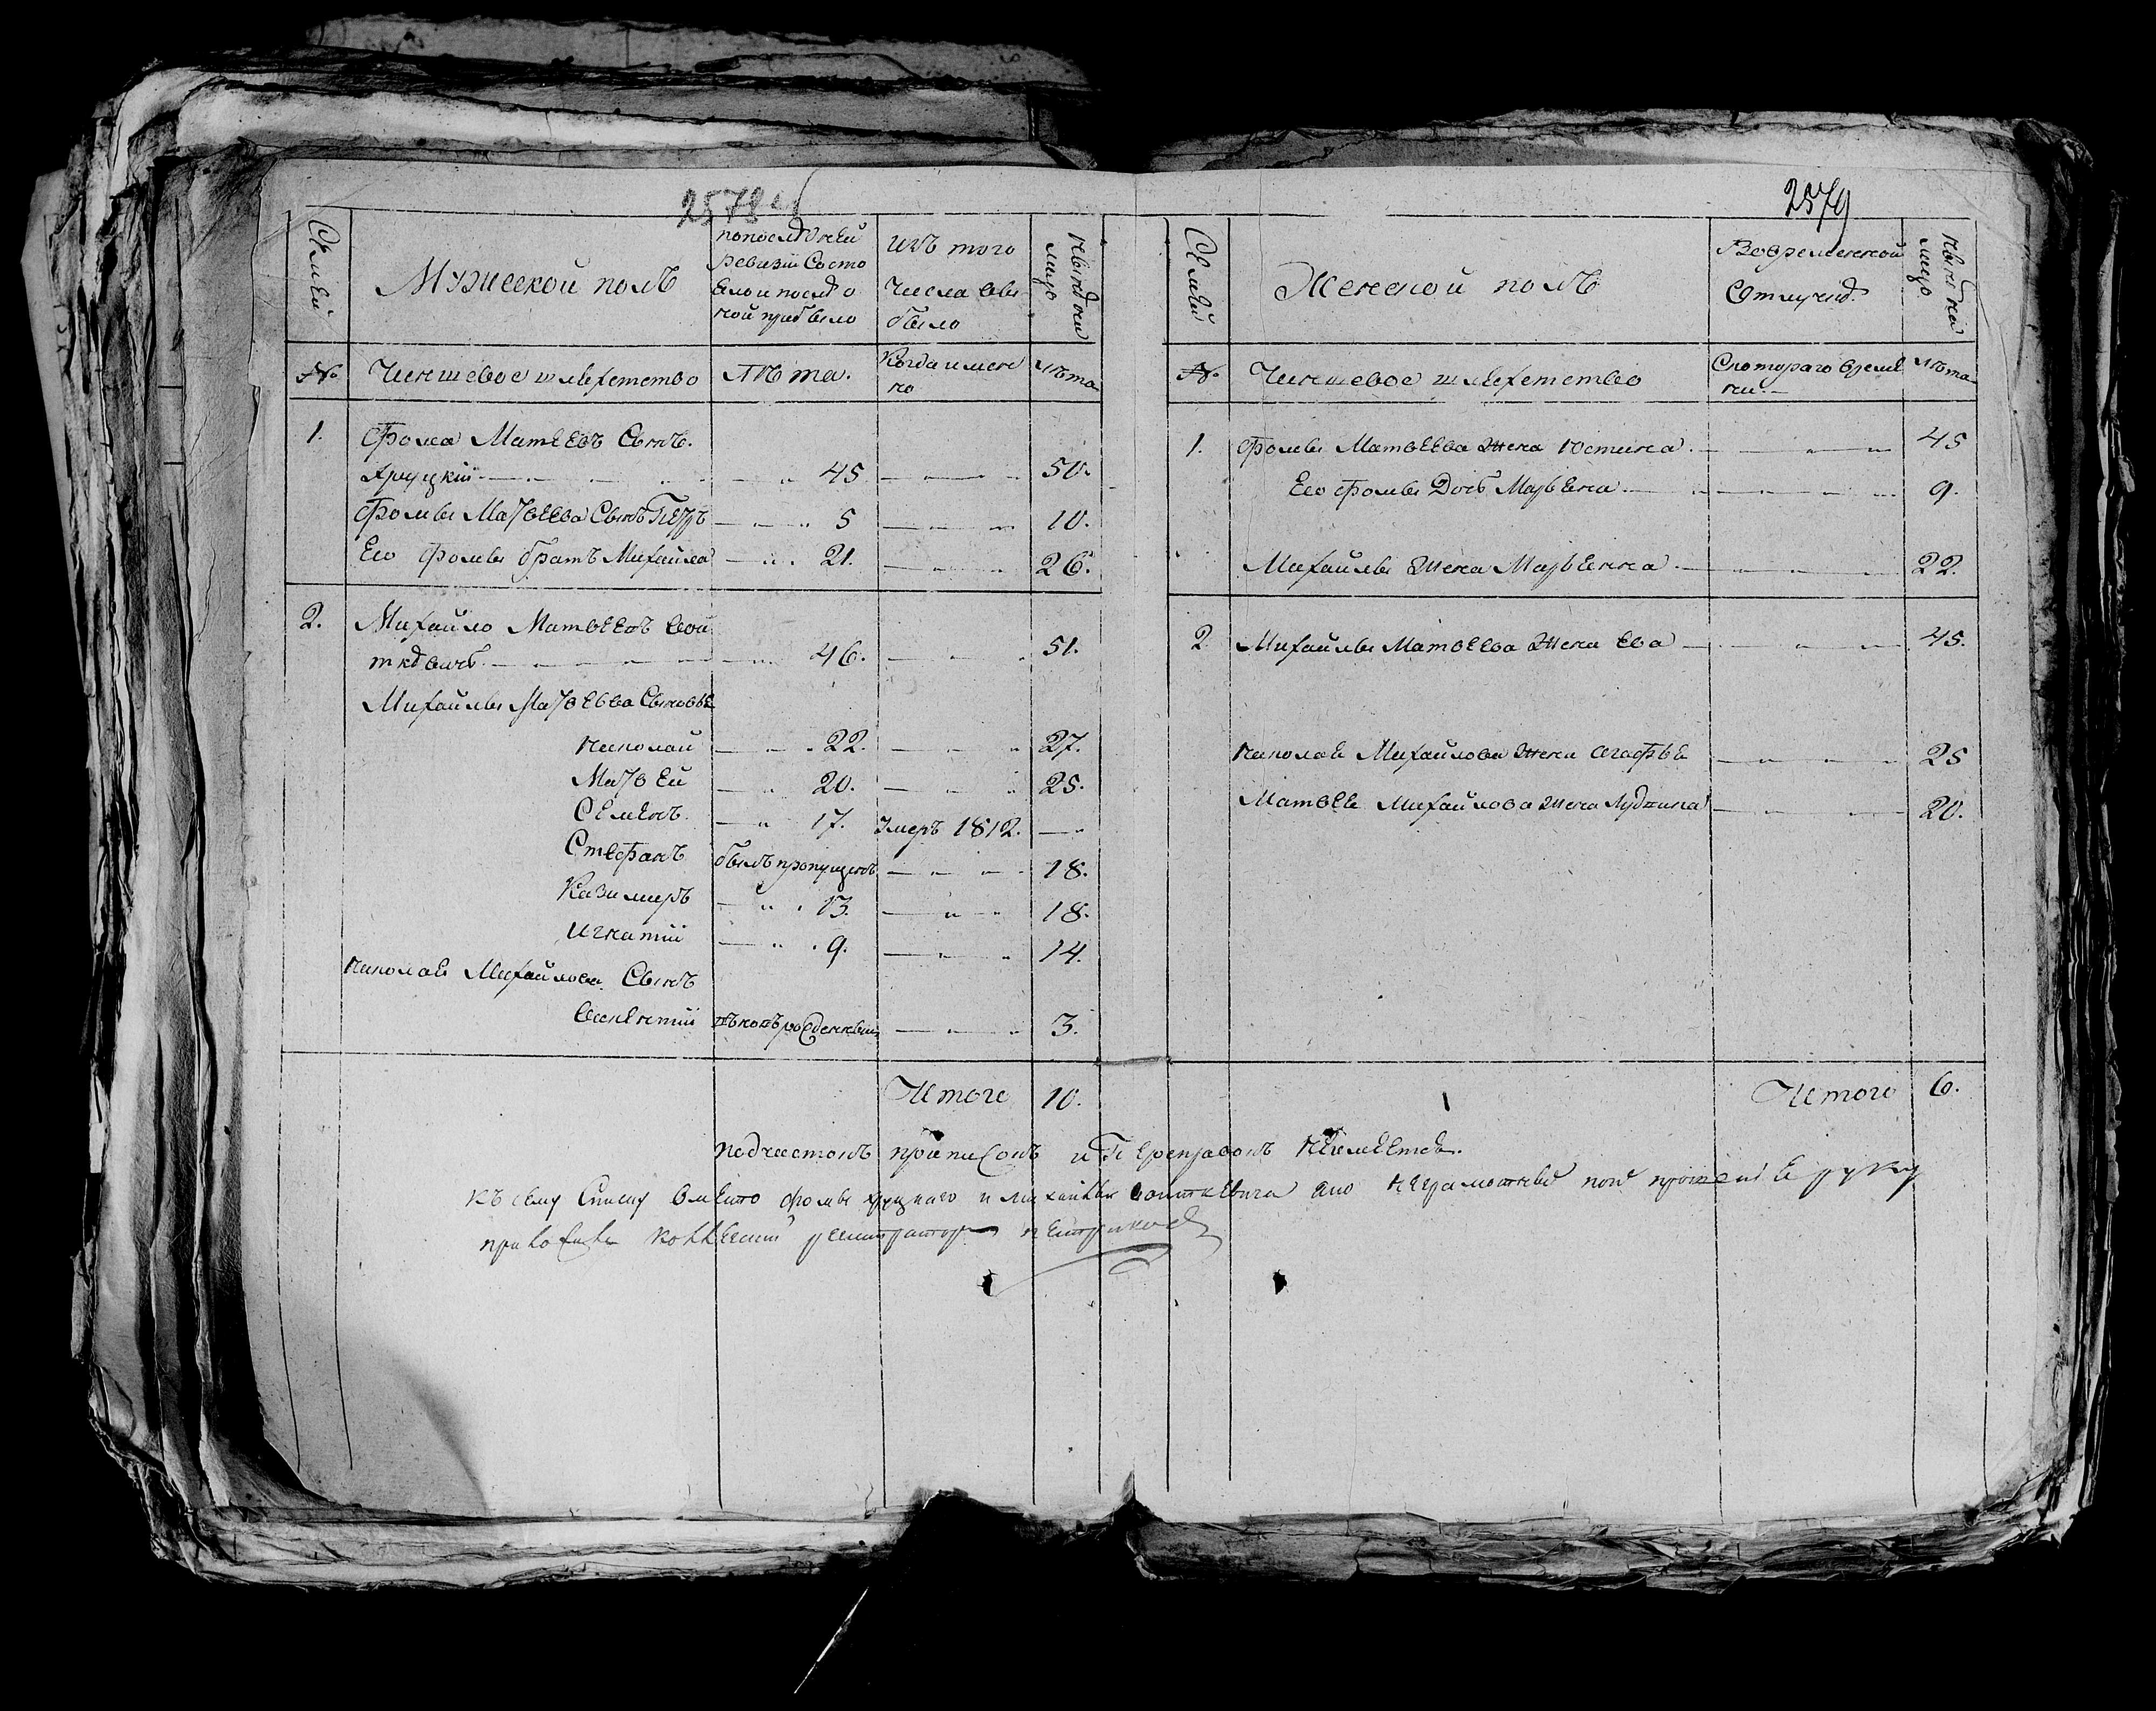 2579
Семей
Мужеской полъ
попоследней
ревизіи Состо
Ело и после о
ной прибыло
Изъ того
Числа выбыло
Ныне на лицо
№
Чиншевое шляхетство
Лета.
Когда имен
но
лета
1. Фома Матвеевъ Сынъ.
Хруцкій 45 50.
Фомы Матвеева Сынъ Петръ 5 10.
Его Фомы братъ Михайла 21. 26.
2. Михайло Матвеевъ Вой
ткевичъ 46. 51.
Михайлы Матвеева Сыновье
Николай 22. 27.
Матвей 20. 25.
Семенъ 17. умеръ 1812.
Стефанъ былъ пропущенъ 18.
Казимеръ 13. 18.
Игнатій 9. 14.
Николая Михайлова Сынъ
новорожденный 3.
Итого 10.
2579
Семей
Женской полъ
Вовременной
Отлучке
Ныне на лицо
№
Чиншевое шляхетство
Скотораго време
ни
лета
1. Фомы Матвеева Жена Юстина 45
Его Фомы Дочь Марьена 9.
Михайлы Жена Марьенна 22.
2. Михайлы Матвеева Жена Ева 45.
Николая Михайлова Жена Агафья 25
Матвея Михайлова Жена Людвика 20.
Итого 6.
подчистокъ приписокъ и Переправокъ Неимеется.
Къ сему Списку Вместо Фомы Хруцкаго и михайлы Войткевича аио Неграмотных по прошению руку
приложилъ коллежский регистраторъ